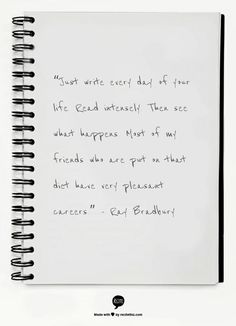 "Just write every day of your
life Read intensely Then see
what happens Most of my
friends who are put on that
diet have very pleasant
careers" - Ray Bradbury
Made with ♥ by recitethis.com